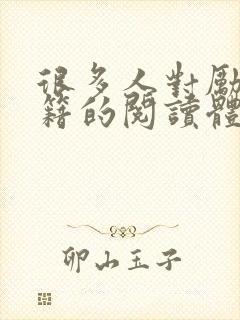 很多人對勵
籍的閱讀體
卯山玉子